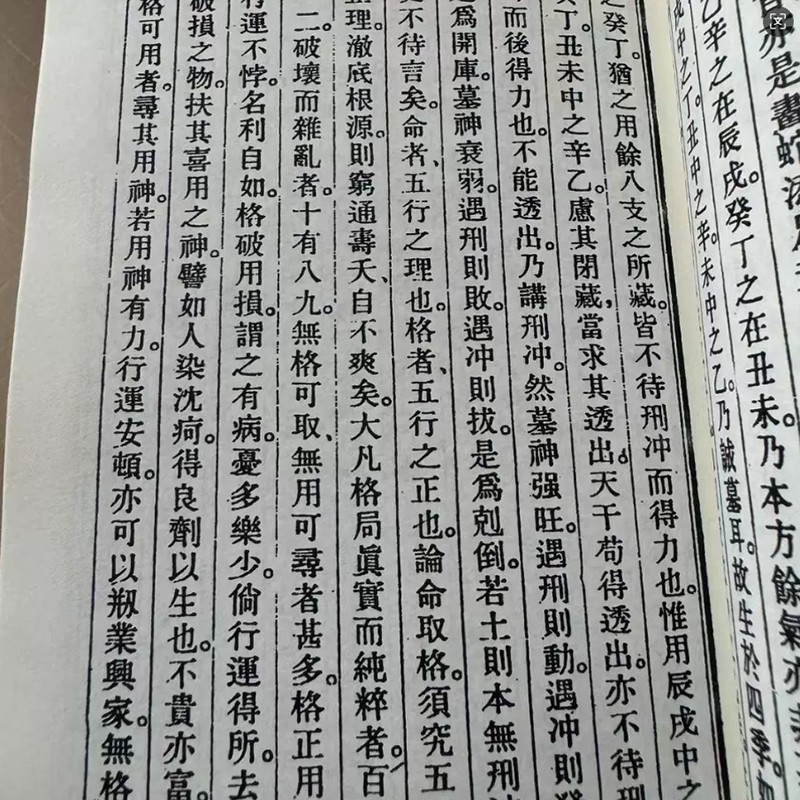 亦是畫蛇添
乙辛之在辰戌。癸丁之在丑未。乃本方餘氣亦
戌中之丁。丑中之辛。未中之乙。乃誠墓耳。故生於四季。如
之癸丁。猶之用餘八支之所藏。皆不待刑冲而得力也。惟用辰戌中之
丁。丑未中之辛乙。慮其閉藏，當求其透出。天干苟得透出。亦不待刑
而後得力也。不能透出。乃講刑冲。然墓神强旺。遇刑則動。遇冲則發
為開庫。墓神衰弱。遇刑則敗。遇冲則拔。是為剋倒。若土則本無刑冲
不待言矣。命者、五行之理也。格者、五行之正也。論命取格。須究五
理。澈底根源。則窮通壽夭、自不爽矣。大凡格局眞實而純粹者。百
二。破壞而雜亂者。十有八九。無格可取、無用可尋者甚多。格正用
行運不悖。名利自如。格破用損。謂之有病。憂多樂少。倘行運得所。去
破損之物。扶其喜用之神。譬如人染沈疴。得良劑以生也。不貴亦富。
格可用者。尋其用神。若用神有力。行運安頓。亦可以剏業興家。無格